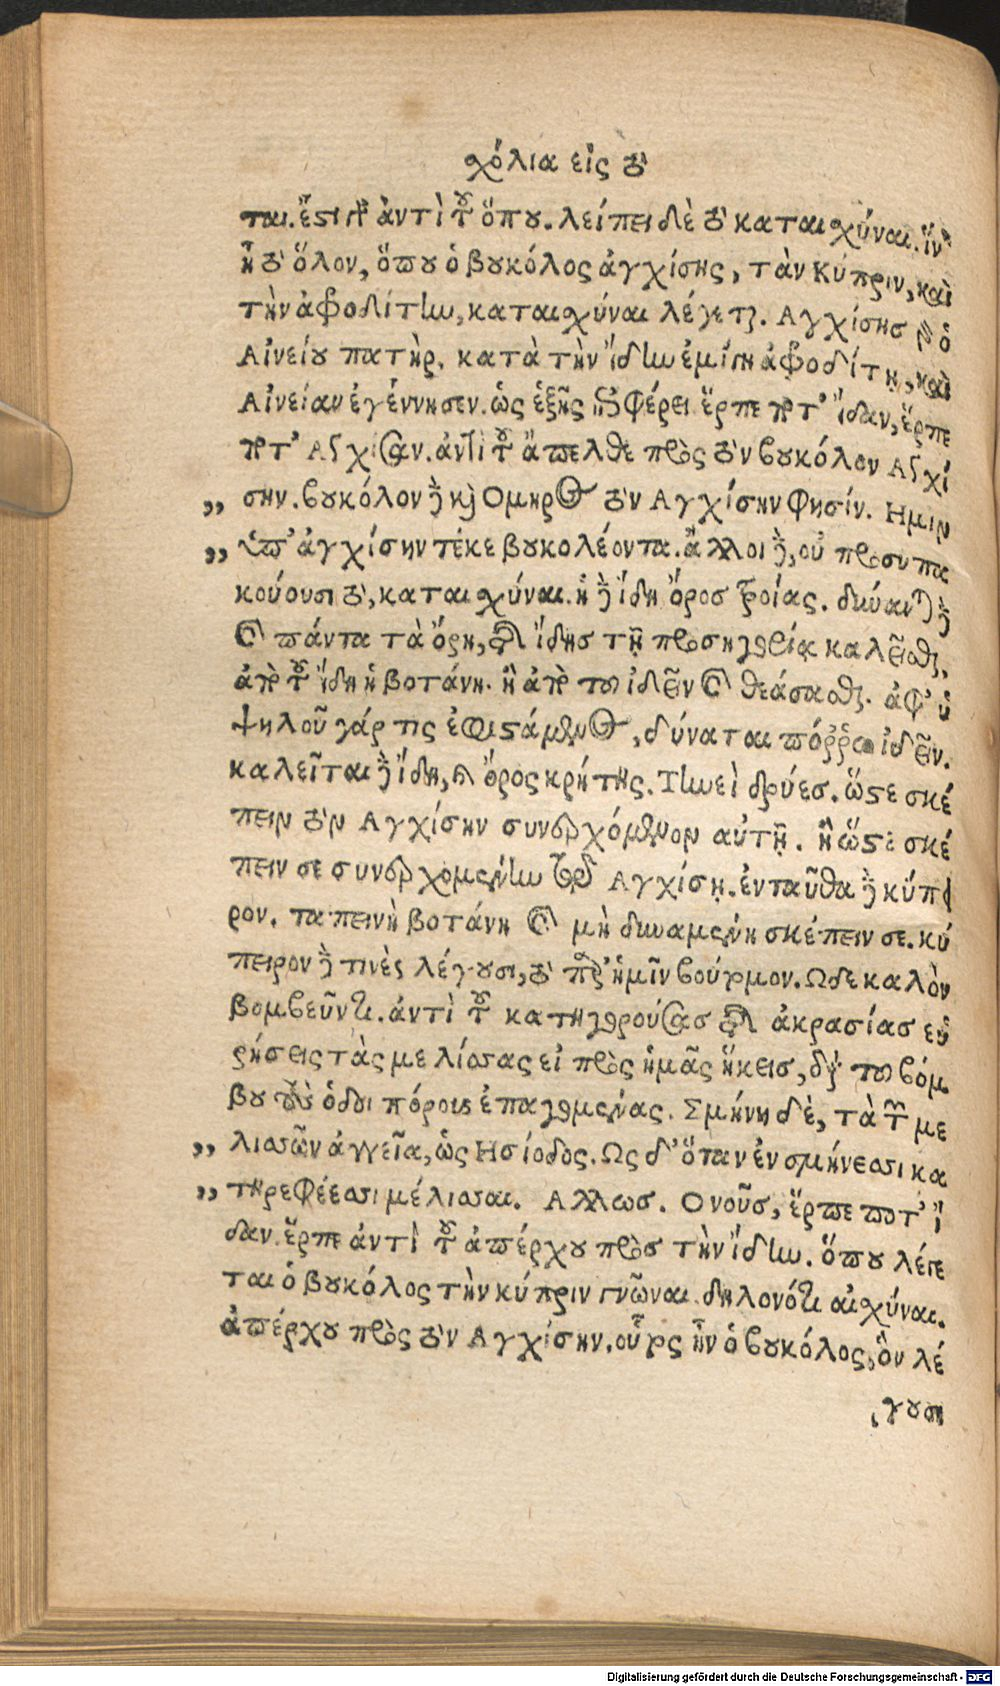 σχόλια εἰς τὸ
ται. ἔστι δὲ ἀντὶ τοῦ ὅπου. λείπει δὲ τὸ καταισχύναι. ἵν'
ᾖ τὸ ὅλον, ὅπου ὁ βουκόλος ἀγχίσης, τὰν Κύπριν, καὶ
τὴν ἀφροδίτην, καταισχύναι λέγεται. Αγχίσης δὲ ὁ
Αἰνείου πατὴρ. κατὰ τὴν ἴδην ἐμίγη ἀφροδίτῃ, καὶ
Αἰνείαν ἐγέννησεν. ὡς ἑξῆς ἐπιφέρει ἕρπε ποτ' ἴδαν, ἕρπε
ποτ' Αγχίσαν. ἀντὶ τοῦ ἄπελθε πρὸς τὸν βουκόλον Αγχί
„ σην. βουκόλον δὲ καὶ Ομηρος τὸν Αγχίσην φησίν. Ημιν
„ ὑπ' ἀγχίσην τέκε βουκολέοντα. ἄλλοι δὲ, οὐ προσυπα
κούουσι τὸ, καταισχύναι. ἡ δὲ ἴδη ὄρος τροίας. δύναται δὲ
καὶ πάντα τὰ ὄρη, διὰ ἴδης τῇ προσηγορίᾳ καλεῖσθαι,
ἀπὸ τοῦ ἴδη ἡ βοτάνη. ἢ ἀπὸ του ἰδεῖν καὶ θεάσασθαι. ἀφ' ὑ
ψηλοῦ γάρ τις ἐφιστάμενος, δύναται πόῤῥω ἰδεῖν.
καλεῖται δὲ ἴδη, καὶ ὄρος κρήτης. Τηνεὶ δρύες. ὥστε σκέ
πειν τὸν Αγχίσην συνερχόμενον αὐτῇ. ἢ ὥστε σκέ
πειν σε συνερχομένην τῷ Αγχίσῃ. ἐνταῦθα δὲ κύπει
ρον. ταπεινὴ βοτάνη καὶ μὴ δυναμένη σκέπειν σε. κύ
πειρον δὲ τινὲς λέγουσι, τὸ παρ' ἡμῖν βούρμον. Ωδε καλὸν
βομβεῦντι. ἀντὶ τοῦ κατηγορούσας διὰ ἀκρασίας εὑ
ρήσεις τὰς μελίσσας εἰ πρὸς ἡμᾶς ἥκεις, διὰ του βόμ
βου τοῖς ὁδοιπόροις ἐπαγομένας. Σμήνη δὲ, τὰ τῶν με
„ λισσῶν ἀγγεῖα, ὡς Ησίοδος. Ως δ' ὅταν ἐν σμήνεσσι κα
„ τηρεφέεσσι μέλισσαι. Αλλως. Ο νοῦς, ἕρπε ποτ' ἴ
δαν. ἕρπε ἀντὶ τοῦ ἀπέρχου πρὸς τὴν ἴδην. ὅπου λέγε
ται ὁ βουκόλος τὴν κύπριν γνῶναι. δηλονότι αἰσχύναι.
ἀπέρχου πρὸς τὸν Αγχίσην. οὗτος ἦν ὁ βουκόλος, ὃν λέ
γουσι